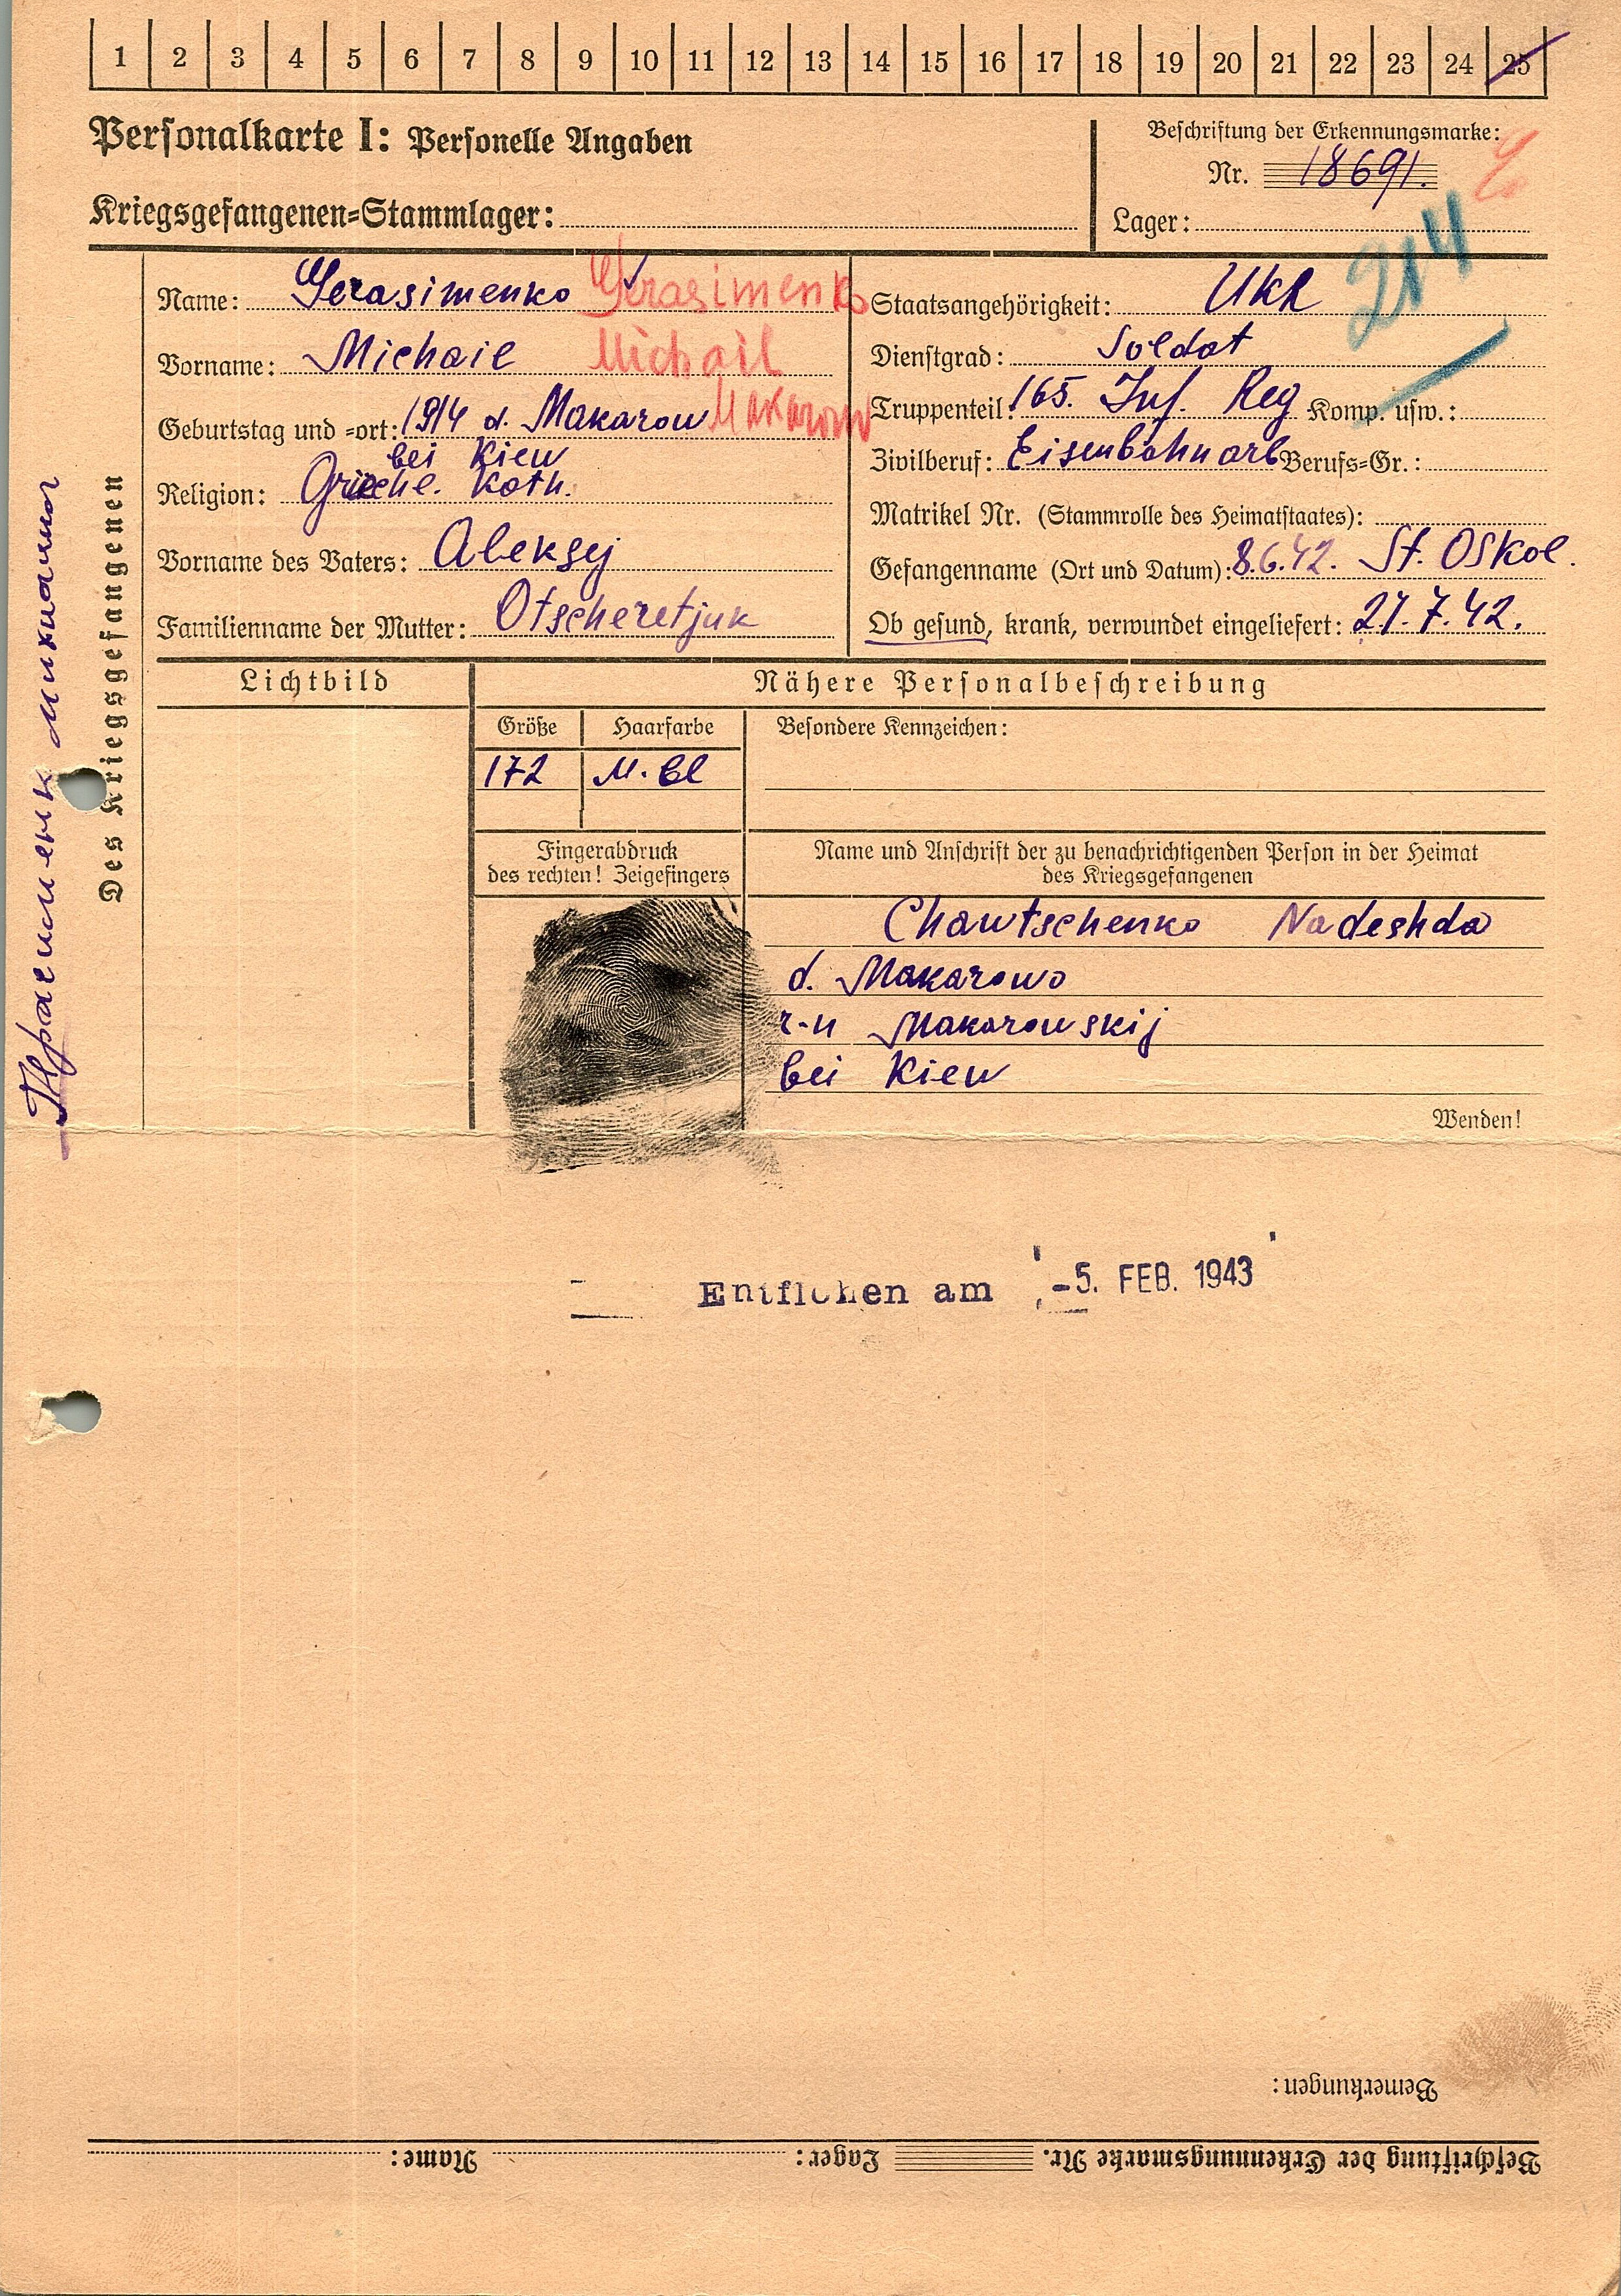 1 2 3 4 5 6 7 8 9 10 11 12 13 14 15 16 17 18 19 20 21 22 23 24 25
Personalkarte I: Personelle Angaben
Kriegsgefangenen=Stammlager:
Beschriftung der Erkennungsmarke:
Nr. 18691.
Lager:
214
Des Kriegsgefangenen
Name: Gerasimenko Gerasimenko
Vorname: Michail Michail
Geburtstag und =ort: 1914 d. Makarow Makarow
bei Kiew
Religion: Griech. Kath.
Vorname des Vaters: Aleksej
Familienname der Mutter: Otscheretjuk
Staatsangehörigkeit: Ukr
Dienstgrad: Soldat
Truppenteil: 165. Inf. Reg Komp. usw.:
Zivilberuf: Eisenbahnarb Berufs=Gr.:
Matrikel Nr. (Stammrolle des Heimatstaates):
Gefangenname (Ort und Datum): 8.6.42. St. Oskol.
Ob gesund, krank, verwundet eingeliefert: 27.7.42.
Lichtbild
Nähere Personalbeschreibung
Größe Haarfarbe Besondere Kennzeichen:
172 M. bl
Fingerabdruck
des rechten! Zeigefingers
Name und Anschrift der zu benachrichtigenden Person in der Heimat
des Kriegsgefangenen
Chawtschenko Nadeshda
d. Makarowo
r-n Makarowskij
bei Kiew
Wenden!
Entflohen am -5. FEB. 1943
Bemerkungen:
Beschriftung der Erkennungsmarke Nr. Lager: Name: